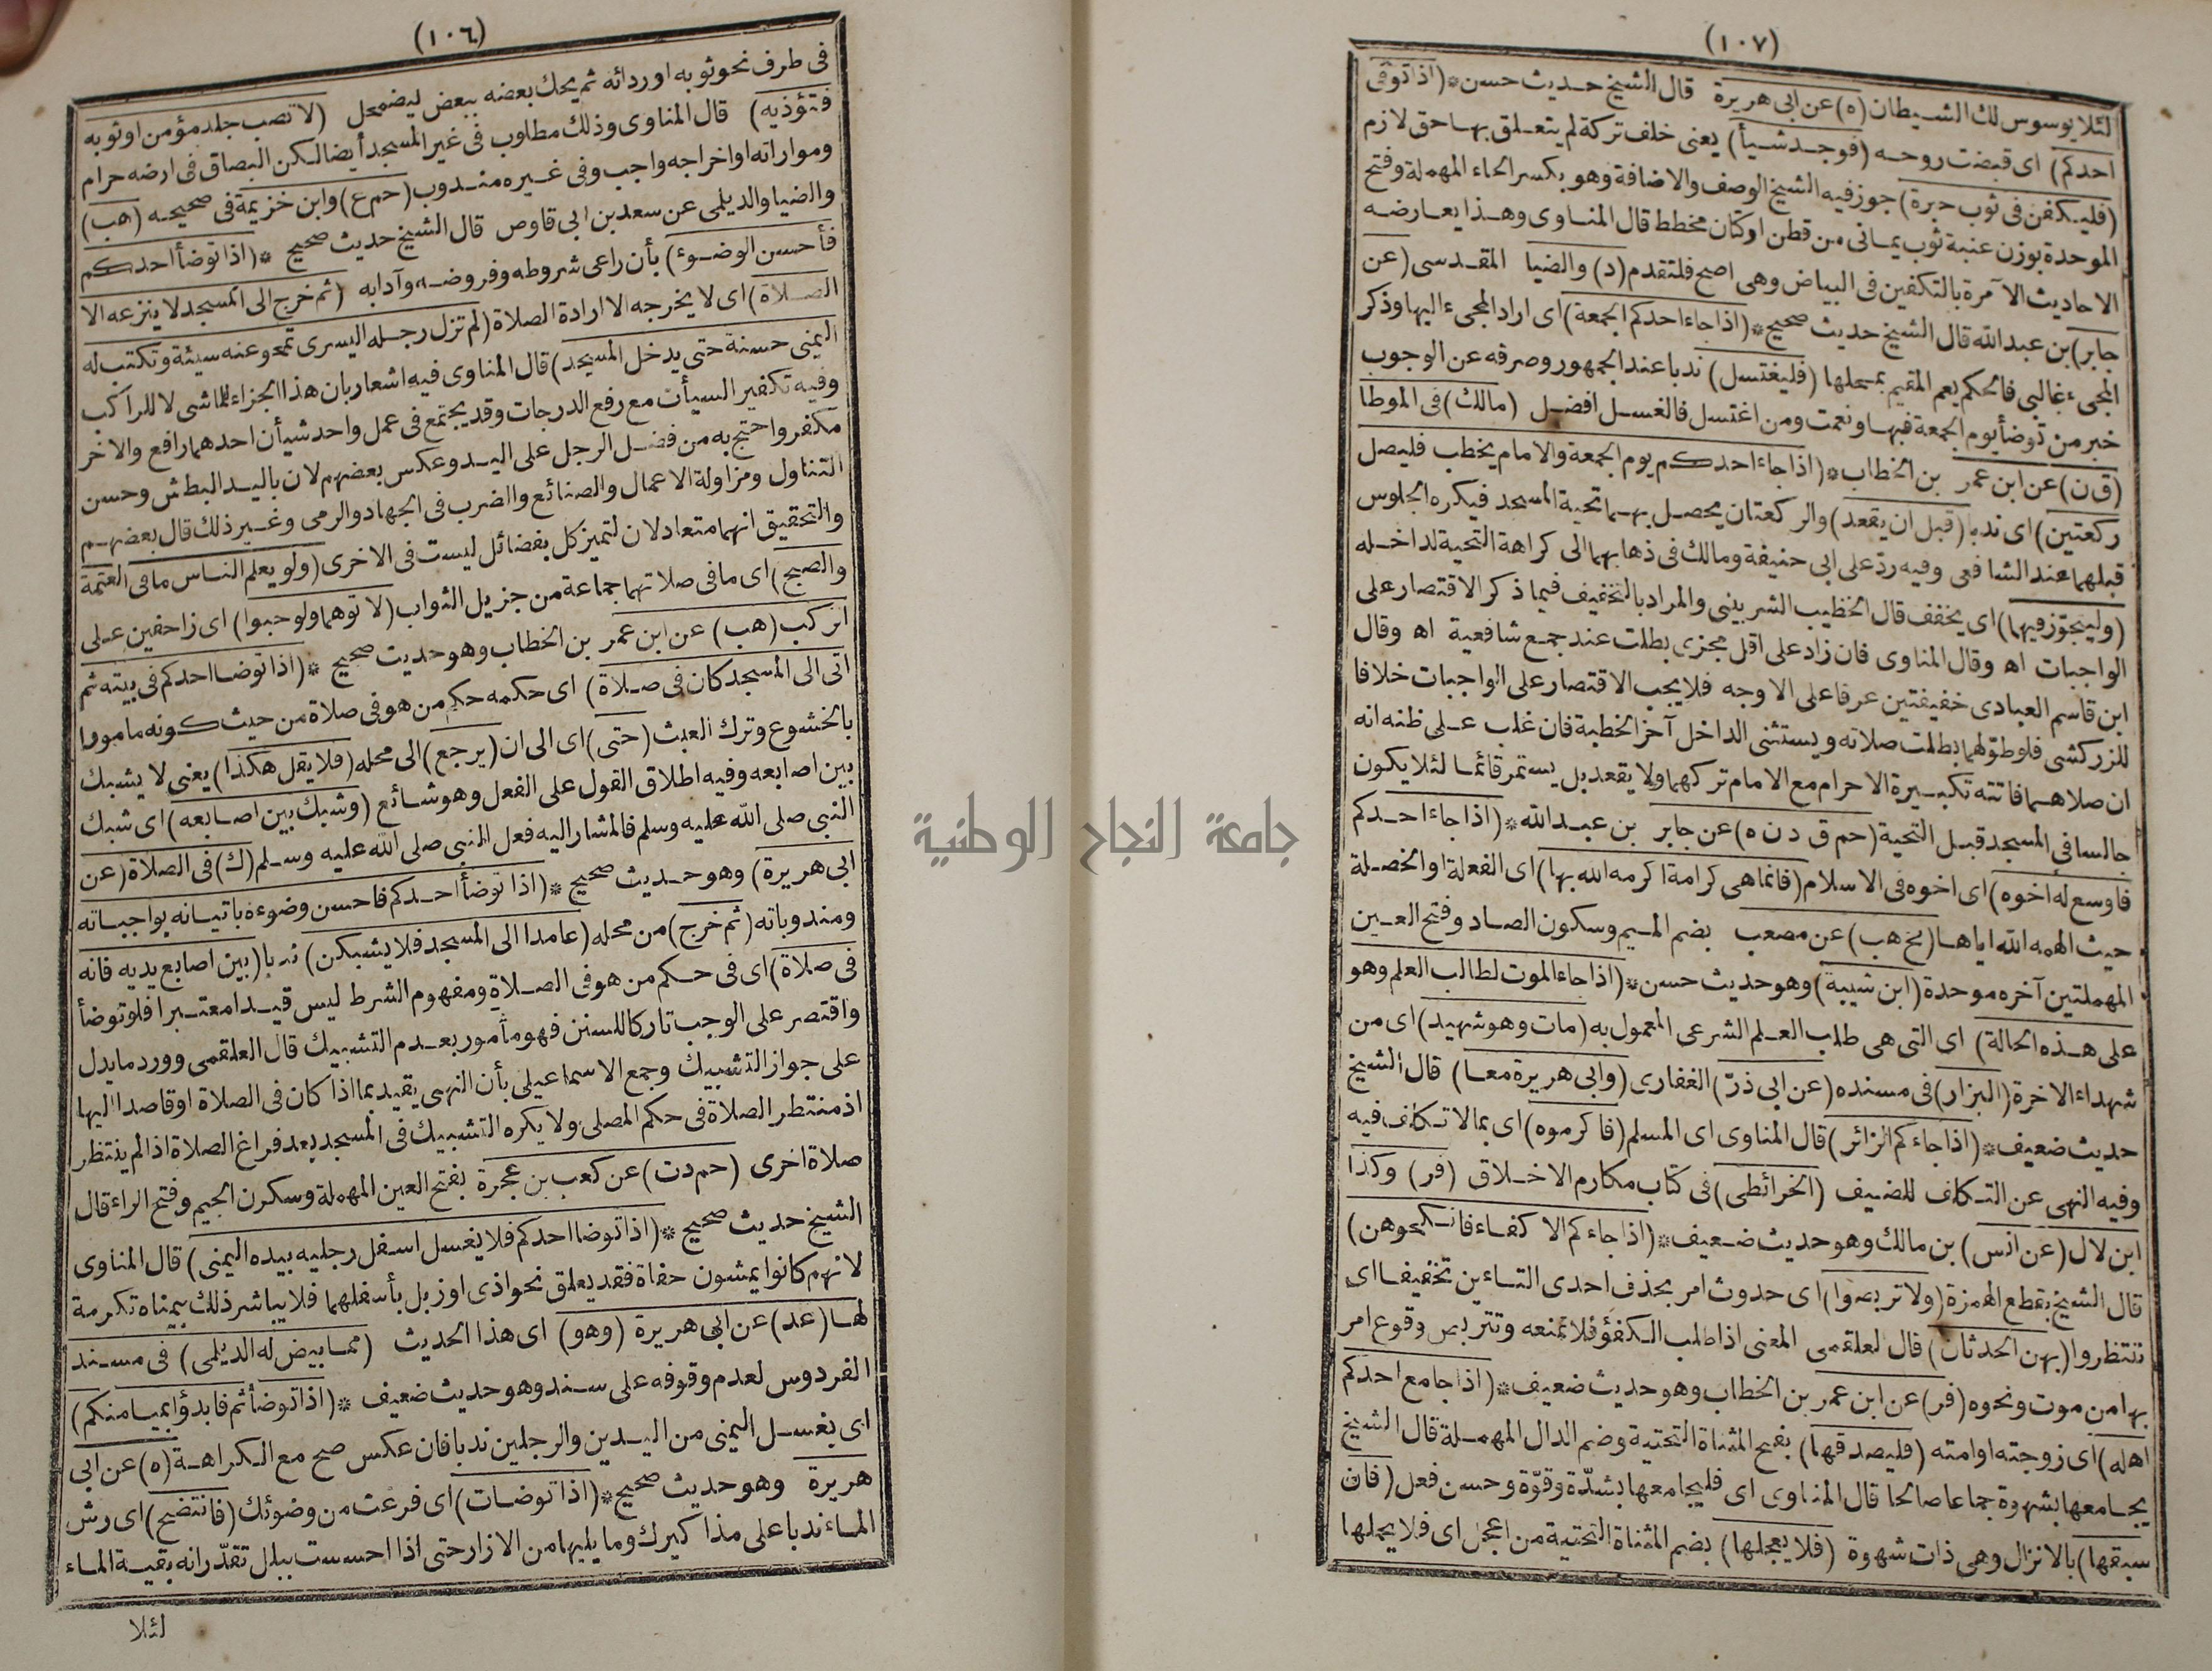 (١٠٦)
فى طرف نحو ثوبه او ردائه ثم يحك بعضه ببعض ليضمحل (لا تصب جلد مؤمن او ثوبه
فتؤذيه) قال المناوى وذلك مطلوب فى غير المسجد أيضا لكن البصاق فى ارضه حرام
ومواراته او اخراجه واجب وفى غيره مندوب (حم ع) وابن خزيمة فى صحيحه (هب)
والضيا والديلمى عن سعد بن ابى قاوص قال الشيخ حديث صحيح * (اذا توضأ احدكم
فأحسن الوضوء) بأن راعى شروطه وفروضه وآدابه (ثم خرج الى المسجد لا ينزعه الا
الصلاة) اى لا يخرجه الا ارادة الصلاة (لم تزل رجله اليسرى تمحو عنه سيئة وتكتب له
اليمنى حسنة حتى يدخل المسجد) قال المناوى فيه اشعار بان هذا الجزاء للماشى لا للراكب
وفيه تكفير السيأت مع رفع الدرجات وقد يجتمع فى عمل واحد شيأن احدهما رافع والاخر
مكفر واحتج به من فضل الرجل على اليد وعكس بعضهم لان باليد البطش وحسن
التناول ومزاولة الاعمال والصنائع والضرب فى الجهاد والرمى وغير ذلك قال بعضهم
والتحقيق انهما متعادلان لتميز كل بفضائل ليست فى الاخرى (ولو يعلم الناس ما فى العتمة
والصبح) اى ما فى صلاتهما جماعة من جزيل الثواب (لا توهما ولو حبوا) اى زاحفين على
الركب (هب) عن ابن عمر بن الخطاب وهو حديث صحيح * (اذا توضا احدكم فى بيته ثم
اتى الى المسجد كان فى صلاة) اى حكمه حكم من هو فى صلاة من حيث كونه مامورا
بالخشوع وترك العبث (حتى) اى الى ان (يرجع) الى محله (فلا يقل هكذا) يعنى لا يشبك
بين اصابعه وفيه اطلاق القول على الفعل وهو شائع (وشبك بين اصابعه) اى شبك
النبى صلى الله عليه وسلم فالمشار اليه فعل النبى صلى الله عليه وسلم (ك) فى الصلاة (عن
ابى هريرة) وهو حديث صحيح * (اذا توضأ احدكم فاحسن وضوءه باتيانه بواجباته
ومندوباته (ثم خرج) من محله (عامدا الى المسجد فلا يشبكن) ندبا (بين اصابع يديه فانه
فى صلاة) اى فى حكم من هو فى الصلاة ومفهوم الشرط ليس قيدا معتبرا فلو توضأ
واقتصر على الوجب تاركا للسنن فهو مأمور بعدم التشبيك قال العلقمى وورد ما يدل
على جواز التشبيك وجمع الاسماعيلى بأن النهى يقيد بما اذا كان فى الصلاة او قاصدا اليها
اذ منتظر الصلاة فى حكم المصلى ولا يكره التشبيك فى المسجد بعد فراغ الصلاة اذا لم ينتظر
صلاة اخرى (حم دت) عن كعب بن عجرة بفتح العين المهملة وسكون الجيم وفتح الراء قال
الشيخ حديث صحيح * (اذا توضا احدكم فلا يغسل اسفل رجليه بيده اليمنى) قال المناوى
لانهم كانوا يمشون حفاة فقد يعلق نحو اذى او زبل بأسفلهما فلا يباشر ذلك بيمناه تكرمة
لها (عد) عن ابى هريرة (وهو) اى هذا الحديث (مما بيض له الديلمى) فى مسند
الفردوس لعدم وقوفه على سند وهو حديث ضعيف * (اذا توضأتم فابدؤا بميامنكم)
اى بغسل اليمنى من اليدين والرجلين ندبا فان عكس صح مع الكراهة (ه) عن ابى
هريرة وهو حديث صحيح * (اذا توضات) اى فرغت من وضوئك (فانتضح) اى رش
الماء ندبا على مذاكيرك وما يليها من الازار حتى اذا احسست ببلل تقدّر انه بقية الماء
لئلا
(١٠٧)
لئلا يوسوس لك الشيطان (ه) عن ابى هريرة قال الشيخ حديث حسن * (اذا توفى
احدكم) اى قبضت روحه (فوجد شيأ) يعنى خلف تركة لم يتعلق بها حق لازم
(فليكفن فى ثوب حبرة) جوز فيه الشيخ الوصف والاضافة وهو بكسر الحاء المهملة وفتح
الموحدة بوزن عنبة ثوب يمانى من قطن او كتان مخطط قال المناوى وهذا يعارضه
الاحاديث الآمرة بالتكفين فى البياض وهى اصح فلتقدم (د) والضيا المقدسى (عن
جابر) بن عبد الله قال الشيخ حديث صحيح * (اذا جاء احدكم الجمعة) اى اراد المجىء اليها وذكر
المجىء غالبى فالحكم يعم المقيم بمحلها (فليغتسل) ندبا عند الجمهور وصرفه عن الوجوب
خبر من توضأ يوم الجمعة فبها ونعمت ومن اغتسل فالغسل افضل (مالك) فى الموطا
(ق ن) عن ابن عمر بن الخطاب * (اذا جاء احدكم يوم الجمعة والامام يخطب فليصل
ركعتين) اى ندبا (قبل ان يقعد) والركعتان يحصل بهما تحية المسجد فيكره الجلوس
قبلهما عند الشافعى وفيه ردّ على ابى حنيفة ومالك فى ذهابهما الى كراهة التحية لداخله
(وليتجوّز فيهما) اى يخفف قال الخطيب الشربينى والمراد بالتخفيف فيما ذكر الاقتصار على
الواجبات اه وقال المناوى فان زاد على اقل مجزى بطلت عند جمع شافعية اه وقال
ابن قاسم العبادى خفيفتين عرفا على الاوجه فلا يجب الاقتصار على الواجبات خلافا
للزركشى فلو طوّلهما بطلت صلاته ويستثنى الداخل آخر الخطبة فان غلب على ظنه انه
ان صلاهما فاتته تكبيرة الاحرام مع الامام تركهما ولا يقعد بل يستمر قائما لئلا يكون
جالسا فى المسجد قبل التحية (حم ق د ن ه) عن جابر بن عبد الله * (اذا جاء احدكم
فاوسع له اخوه) اى اخوه فى الاسلام (فانما هى كرامة اكرمه الله بها) اى الفعلة او الخصلة
حيث الهمه الله اياها (تخ هب) عن مصعب بضم الميم وسكون الصاد وفتح العين
المهملتين آخره موحدة (ابن شيبة) وهو حديث حسن * (اذا جاء الموت لطالب العلم وهو
على هذه الحالة) اى التى هى طلب العلم الشرعى المعمول به (مات وهو شهيد) اى من
شهداء الاخرة (البزار) فى مسنده (عن ابى ذرّ) الغفارى (وابى هريرة معا) قال الشيخ
حديث ضعيف * (اذا جاءكم الزائر) قال المناوى اى المسلم (فاكرموه) اى بمالا تكلف فيه
وفيه النهى عن التكلف للضيف (الخرائطى) فى كتاب مكارم الاخلاق (فر) وكذا
ابن لال (عن انس) بن مالك وهو حديث ضعيف * (اذا جاءكم الاكفاء فانكحوهن)
قال الشيخ بقطع الهمزة (ولا تربصوا) اى حدوث امر بحذف احدى التاءين تخفيفا اى
تنتظروا (بهن الحدثان) قال لعلقمى المعنى اذا طلب الكفؤ فلا تمنعه وتتربص وقوع امر
بها من موت ونحوه (فر) عن ابن عمر بن الخطاب وهو حديث ضعيف * (اذا جامع احدكم
اهله) اى زوجته او امته (فليصدقها) بفتح المثناة التحتية وضم الدال المهملة قال الشيخ
يجامعها بشهوة جماعا صالحا قال المناوى اى فليجامعها بشدّة وقوّة وحسن فعل (فان
سبقها) بالانزال وهى ذات شهوة (فلا يعجلها) بضم المثناة التحتية من اعجل اى فلا يحملها
جامعة النجاح الوطنية